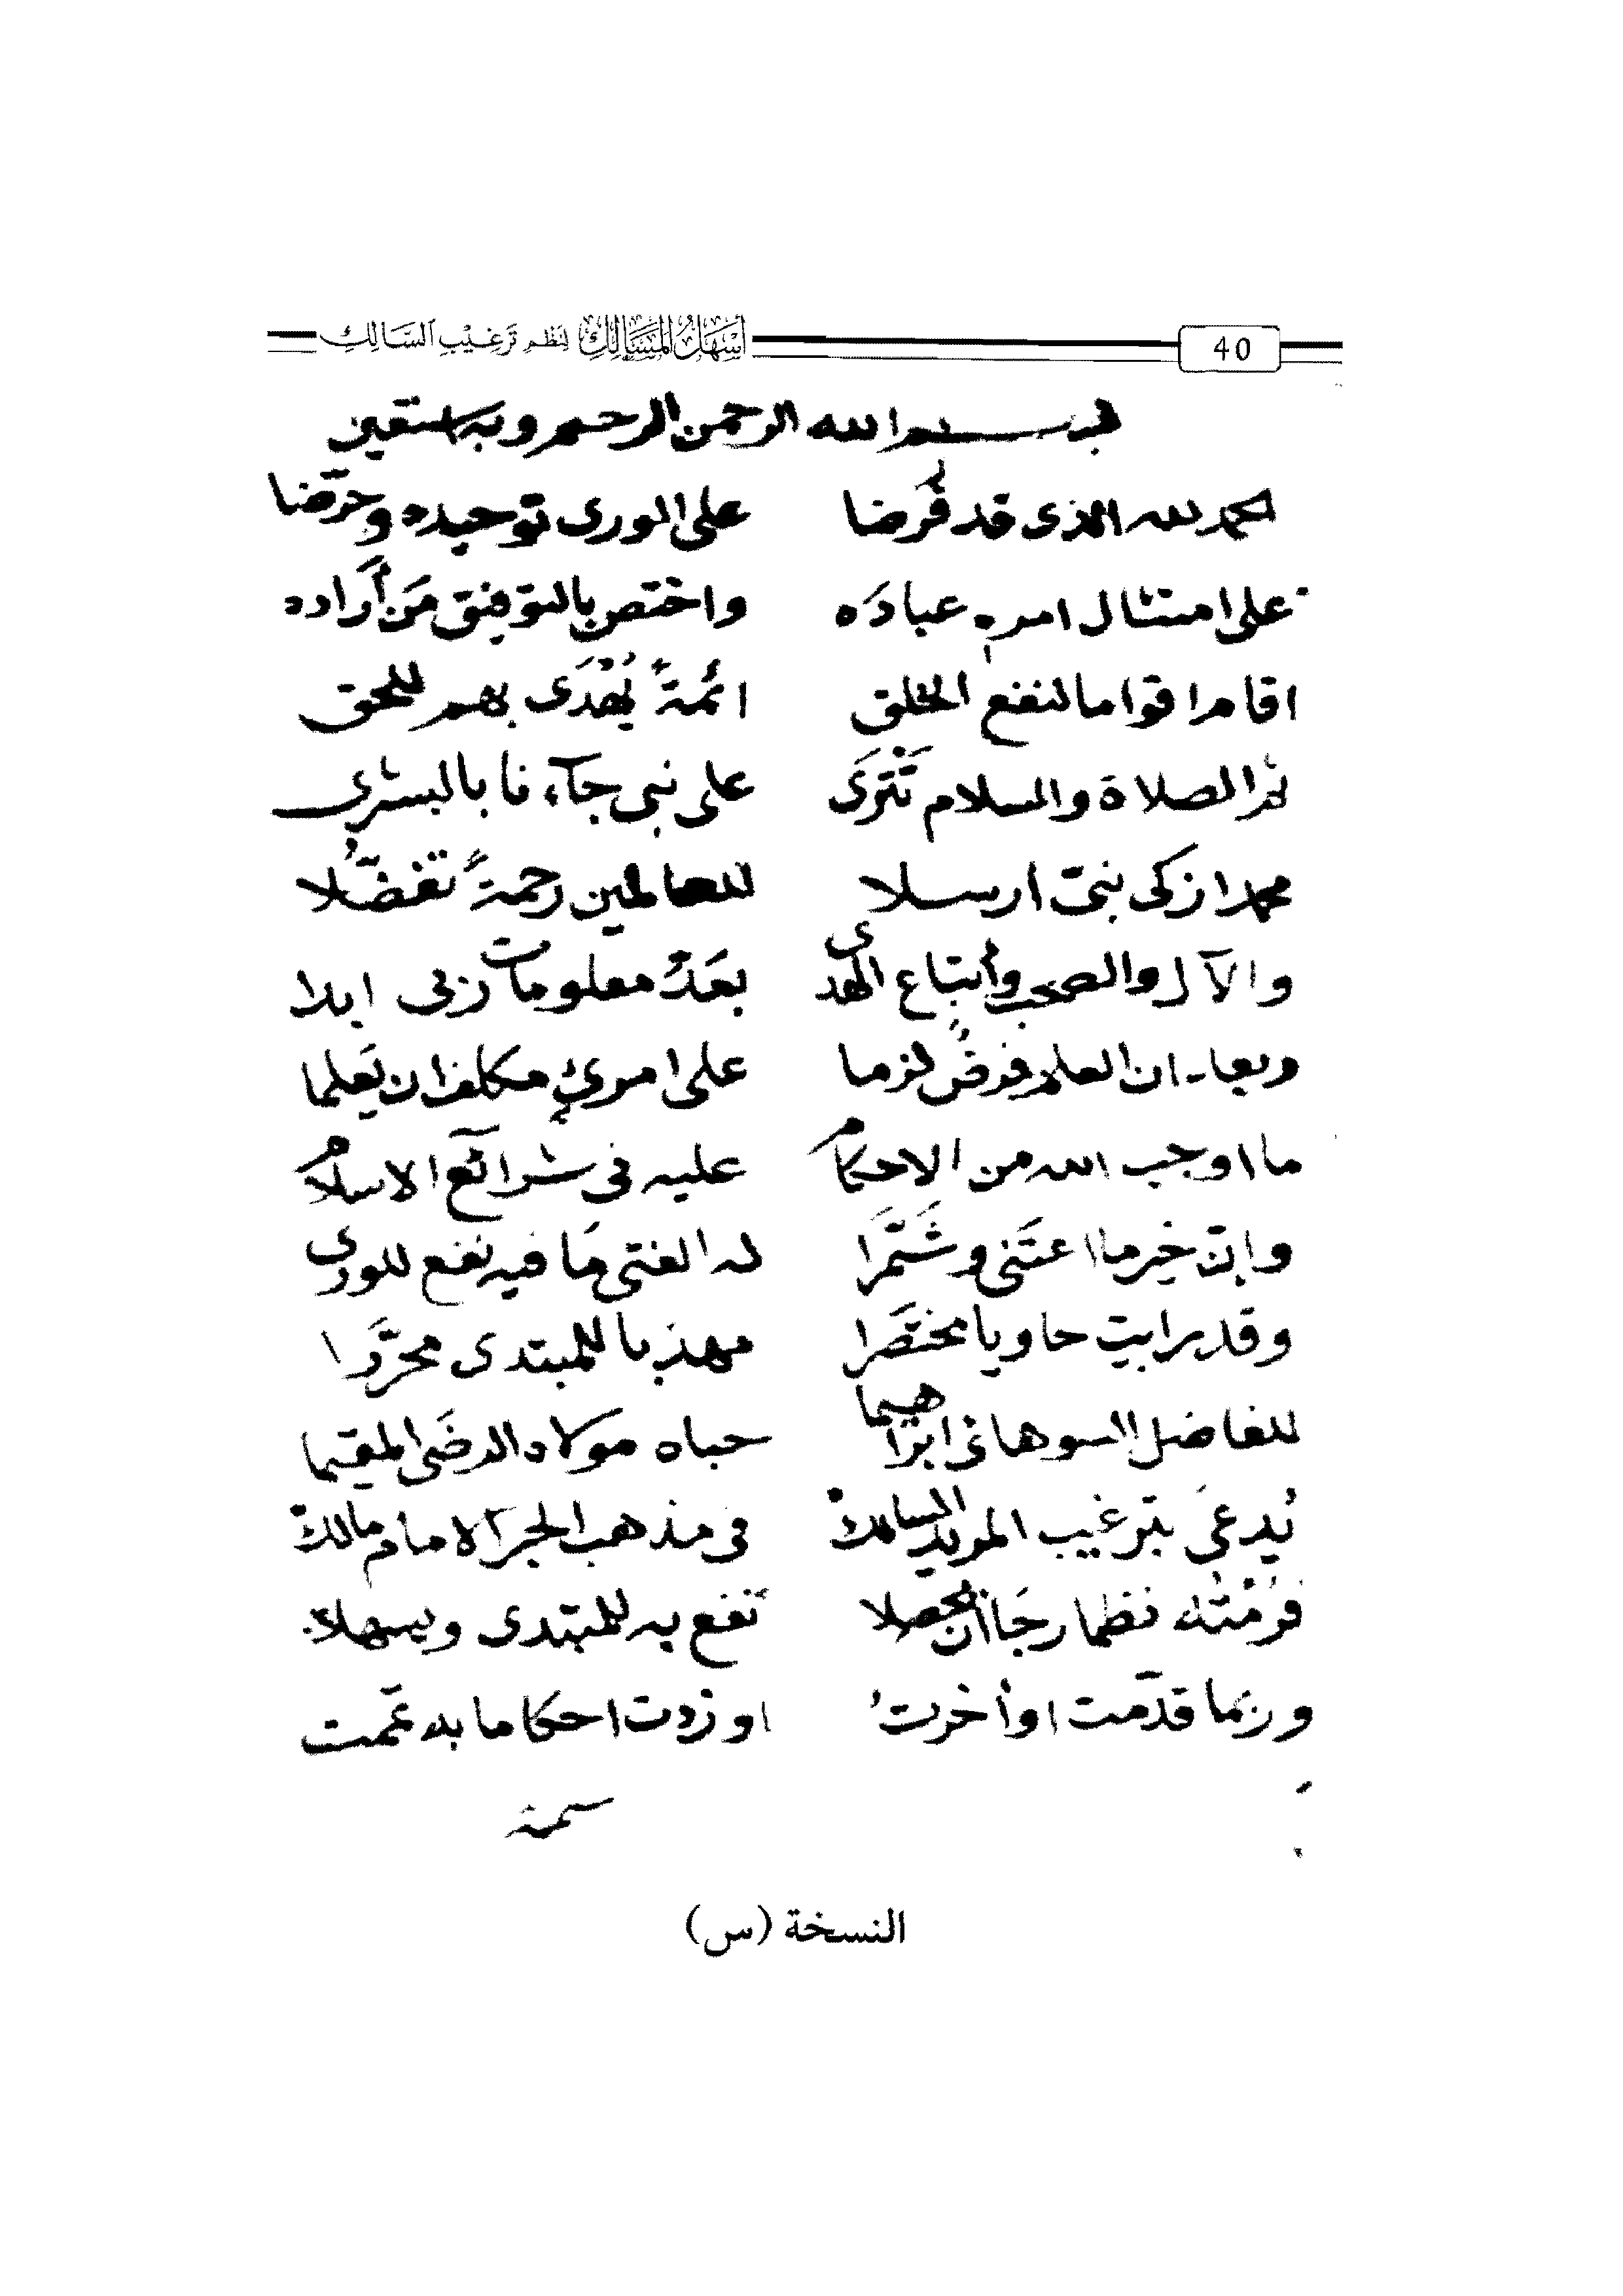 أسهل المسالك لنظم ترغيب السالك 40
بسم الله الرحمن الرحيم وبه استعين
الحمد لله الذى قد فَرضا على الورى توحيده وحرّضا
على امتثال امره عبادَه واختص بالتوفيق مَن أَراده
اقامرا قواما لنفع الخلق ائمةً يُهْدَى بهم للحق
ثم الصلاة والسلام تَتْرَى على نبى جآءنا بالبشرى
محمد ازكى نبىّ ارسلا للعالمين رحمةً تفضُّلا
والآل والصحب وأتباع الهدى بعَدّ معلومات ربى ابدا
وبعد ان العلم فرضٌ لزما على امرئٍ مكلف ان يَعلما
ما اوجب الله من الاحكام عليه فى شرآئع الاسلام
وانّ خير ما اعتَنى وشَمَّرَا له الفتى مَا فيه نفع للورى
وقد رايت حاويا مختصَرا مهذبا للمبتدى محرَّرا
للفاضل السوهانى ابراهيما حباه مولاه الرضَى المقيما
يُدعىَ بترغيب المريد السالك فى مذهب الحبر الامام مالك
فرُمْتُه نظما رجَا ان يحصلا نفع به للمبتدى ويسهلا
وربّما قدّمت او أخرتُ او زدت احكاما به عمّمت
النسخة (س)